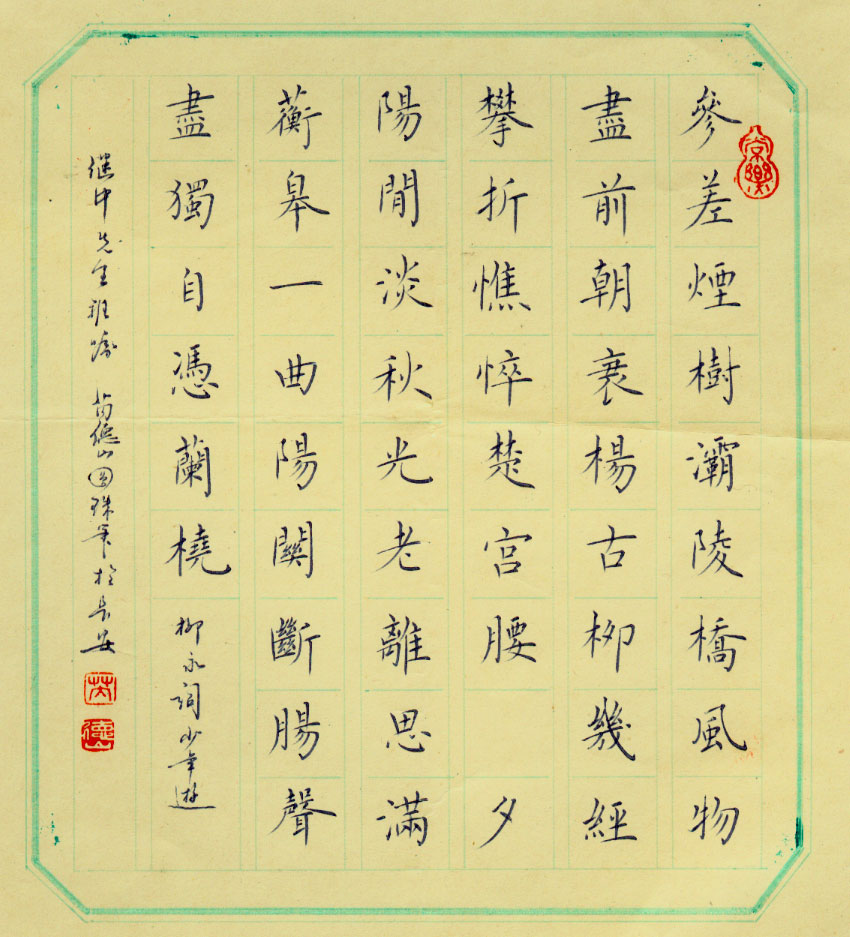 參差煙樹灞陵橋風物
盡前朝衰楊古柳幾經
攀折憔悴楚宮腰 夕
陽閒淡秋光老離思滿
蘅皋一曲陽關斷腸聲
盡獨自憑蘭橈
柳永詞少年遊
继中先生雅嘱 苟德山圆珠笔於長安
德山